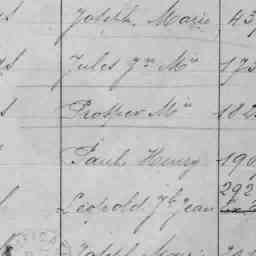 Joseph Marie 43
Jules Jn Me 173
Prosper Me 182
Paul Henry 190
292
Léopold Jh Jean
Joseph Marie